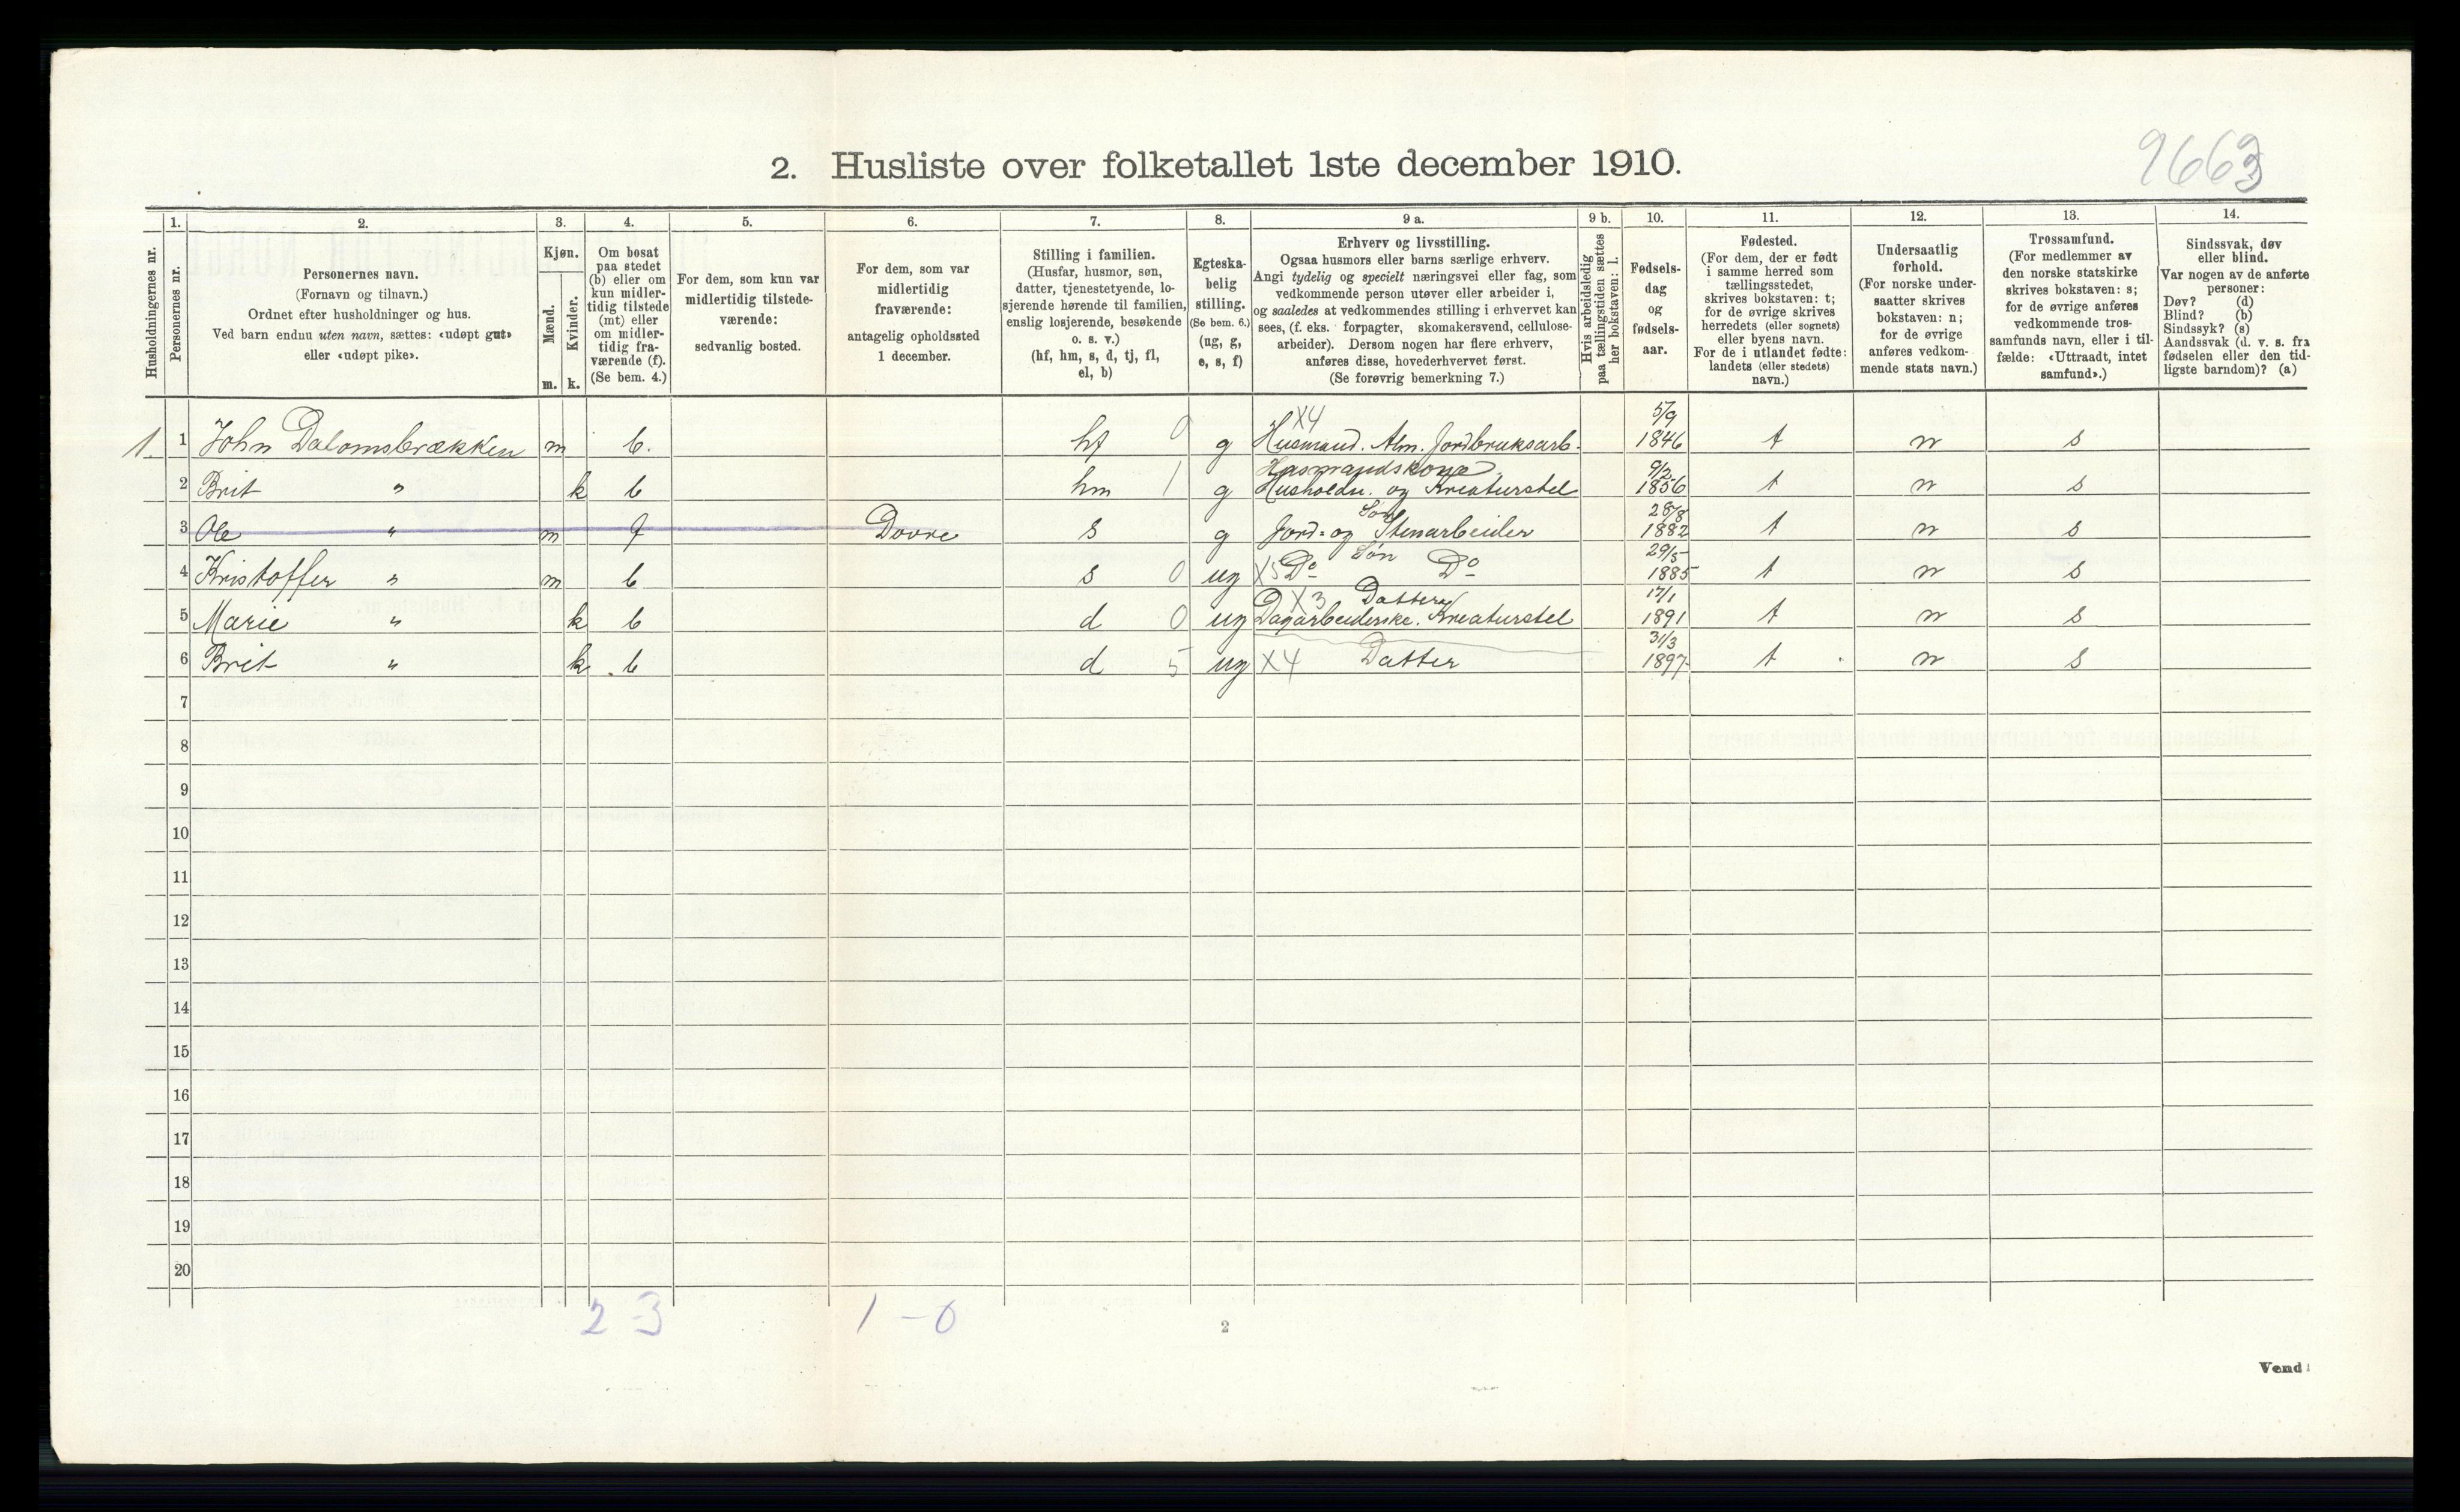 9663
2. Husliste over folketallet 1ste december 1910.
Husholdningernes nr.
1.
Personernes nr.
2.
Personernes navn.
(Fornavn og tilnavn.)
Ordnet efter husholdninger og hus.
Ved barn endnu uten navn, sættes: «udøpt gut»
eller «udøpt pike».
3.
Kjøn.
Mænd.
Kvinder.
m. k.
4.
Om bosat
paa stedet
(b) eller om
kun midler-
tidig tilstede
(mt) eller
om midler-
tidig fra-
værende (f).
(Se bem. 4.)
5.
For dem, som kun var
midlertidig tilstede-
værende:
sedvanlig bosted.
6.
For dem, som var
midlertidig
fraværende:
antagelig opholdssted
1 december.
7.
Stilling i familien.
(Husfar, husmor, søn,
datter, tjenestetyende, lo-
sjerende hørende til familien,
enslig losjerende, besøkende
o. s. v.)
(hf, hm, s, d, tj, fl,
el, b)
8.
Egteska-
belig
stilling.
(Se bem. 6.)
(ug, g,
e, s, f)
9 a.
Erhverv og livsstilling.
Ogsaa husmors eller barns særlige erhverv.
Angi tydelig og specielt næringsvei eller fag, som
vedkommende person utøver eller arbeider i,
og saaledes at vedkommendes stilling i erhvervet kan
sees, (f. eks. forpagter, skomakersvend, cellulose-
arbeider). Dersom nogen har flere erhverv,
anføres disse, hovederhvervet først.
(Se forøvrig bemerkning 7.)
9 b.
Hvis arbeidsledig
paa tællingstiden sættes
her bokstaven: l.
10.
Fødsels-
dag
og
fødsels-
aar.
11.
Fødested.
(For dem, der er født
i samme herred som
tællingsstedet,
skrives bokstaven: t;
for de øvrige skrives
herredets (eller sognets)
eller byens navn.
For de i utlandet fødte:
landets (eller stedets)
navn.)
12.
Undersaatlig
forhold.
(For norske under-
saatter skrives
bokstaven: n;
for de øvrige
anføres vedkom-
mende stats navn.)
13.
Trossamfund.
(For medlemmer av
den norske statskirke
skrives bokstaven: s;
for de øvrige anføres
vedkommende tros-
samfunds navn, eller i til-
fælde: «Uttraadt, intet
samfund».)
14.
Sindssvak, døv
eller blind.
Var nogen av de anførte
personer:
Døv? (d)
Blind? (b)
Sindssyk? (s)
Aandssvak (d. v. s. fra
fødselen eller den tid-
ligste barndom)? (a)
X4 5/9
1. 1 John Dalomsbrækken m b. hf 0 g Husmand. Alm. Jordbruksarb. 1846 t n s
Husmandskone 9/2
2 Brit " k b hm 1 g Husholdn. og Kreaturstel 1856 t n s
Søn 28/8
3 Ole " m f Dovre s g Jord- og Stenarbeider 1882 t n s
Søn 29/5
4 Kristoffer " m b s 0 ug X5 Do Do 1885 t n s
X3 Datter 17/1
5 Marie " k b d 0 ug Dagarbeiderske. Kreaturstel 1891 t n s
31/3
6 Brit " k b d 5 ug X4 Datter 1897 t n s
7
8
9
10
11
12
13
14
15
16
17
18
19
20
2 - 3 1 - 0
2
Vend